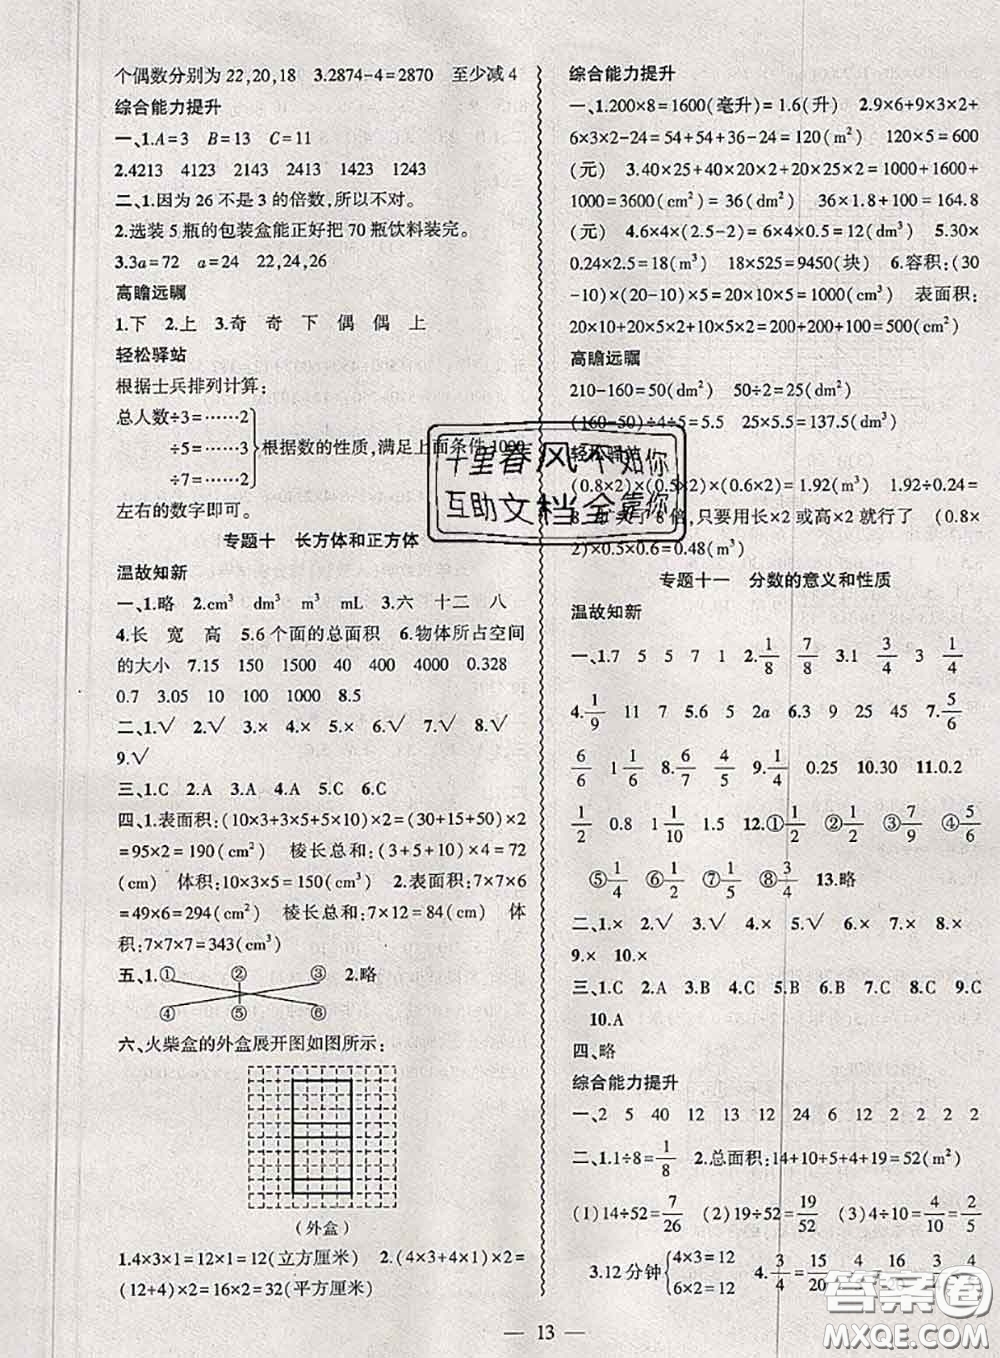 个偶数分别为 22,20,18　3.2874-4=2870　至少减 4
综合能力提升
一、1.A=3　B=13　C=11
2.4213　4123　2143　2413　1423　1243
二、1.因为 26 不是 3 的倍数,所以不对。
2.选装 5 瓶的包装盒能正好把 70 瓶饮料装完。
3.3a=72　a=24　22,24,26
高瞻远瞩
1.下　2.上　3.奇　奇　下　偶　偶　上
轻松驿站
根据士兵排列计算:
总人数÷3=……2
÷5=……3　根据数的性质,满足上面条件 1000
÷7=……2
左右的数字即可。
专题十　长方体和正方体
温故知新
一、1.略　2.cm³　dm³　m³　mL　3.六　十二　八
4.长　宽　高　5.6 个面的总面积　6.物体所占空间
的大小　7.15　150　1500　40　400　4000　0.328
0.7　3.05　10　100　1000　8.5
二、1.√　2.√　3.×　4.×　5.×　6.√　7.√　8.√
9.√
三、1.C　2.A　3.A　4.A　5.C　6.C
四、1.表面积:(10×3+3×5+5×10)×2=(30+15+50)×2
=95×2=190(cm²)　棱长总和:(3+5+10)×4=72
(cm)　体积:10×3×5=150(cm³)　2.表面积:7×7×6
=49×6=294(cm²)　棱长总和:7×12=84(cm)　体
积:7×7×7=343(cm³)
五、1.①　②　③　2.略
④　⑤　⑥
六、火柴盒的外盒展开图如图所示:
(外盒)
1.4×3×1=12×1=12(立方厘米)　2.(4×3+4×1)×2=
(12+4)×2=16×2=32(平方厘米)
综合能力提升
一、1.200×8=1600(毫升)=1.6(升)　2.9×6+9×3×2+
6×3×2-24=54+54+36-24=120(m²)　120×5=600
(元)　3.40×25+40×20×2+20×25×2=1000+1600+
1000=3600(cm²)=36(dm²)　36×1.8+100=164.8
(元)　4.6×4×(2.5-2)=6×4×0.5=12(dm³)　5.30×
0.24×2.5=18(m³)　18×525=9450(块)　6.容积:(30
-10)×(20-10)×5=20×10×5=1000(cm³)　表面积:
20×10+20×5×2+10×5×2=200+200+100=500(cm²)
高瞻远瞩
210-160=50(dm²)　50÷2=25(dm²)
(160-50)÷4÷5=5.5　25×5.5=137.5(dm³)
轻松驿站
(0.8×2)×(0.5×2)×(0.6×2)=1.92(m³)　1.92÷0.24=
8　扩大了 8 倍,只要用长×2 或高×2 就行了　(0.8×
2)×0.5×0.6=0.48(m³)
专题十一　分数的意义和性质
温故知新
一、1.7　5　5　7　1　2.1/8　7/8　3.1　3/4　3　1/4
4.1/9　11　7　5.6　5　2a　6.3　9　25　45　7.5/6
6/6　1 1/6　8.6/7　4/5　9.1/4　0.25　10.30　11.0.2
1/2　0.8　1 1/10　1.5　12.①1/2　②1/2　③7/9　④5/6
⑤1/4　⑥1/4　⑦1/5　⑧3/4　13.略
二、1.×　2.√　3.√　4.×　5.√　6.×　7.×　8.×
9.×　10.×
三、1.C　2.A　3.B　4.C　5.B　6.C　7.C　8.C　9.C
10.A
四、略
综合能力提升
一、2　5　40　12　13　12　24　6　12　2　2　2　2
二、1.1÷8=1/8　2.总面积:14+10+5+4+19=52(m²)
(1)14÷52=7/26　(2)19÷52=19/52　(3)4÷10=4/10=2/5
3.12 分钟　4×3=12　6×2=12　4.3/4=15/20
— 13 —
千里春风不如你
互助文档全靠你
答案圈
MXQE.COM